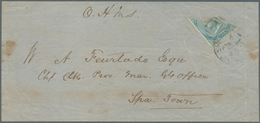 O. H. M. S.
W A Feurtado Esqr
Chf Clk Prov Mar Gl Office
Spa. Town